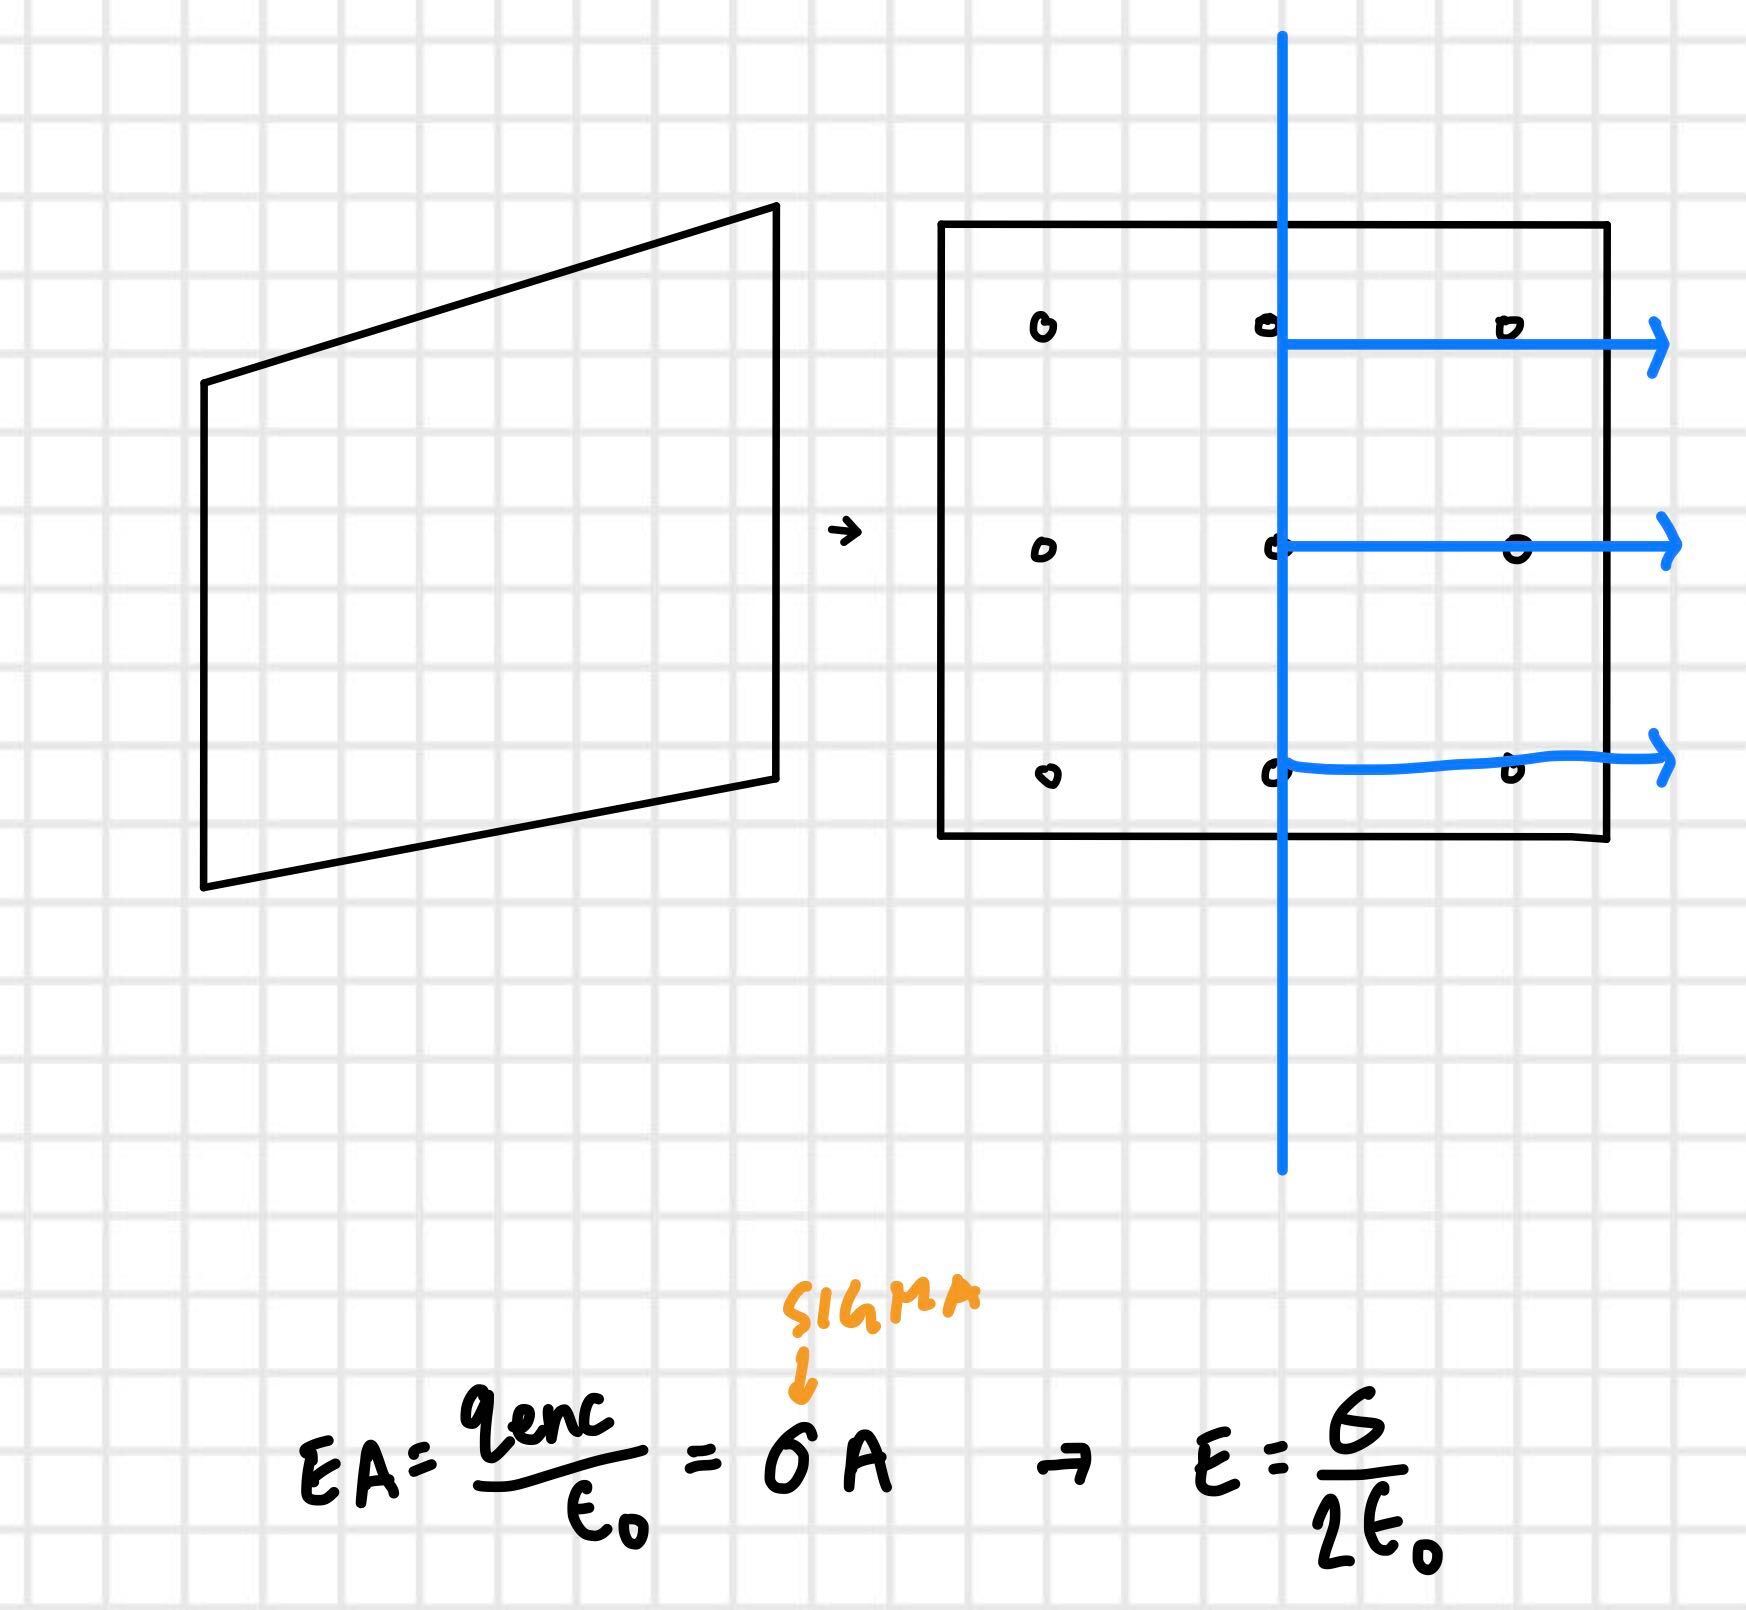 SIGMA
EA = qenc/ε0 = σA → E = σ/2ε0